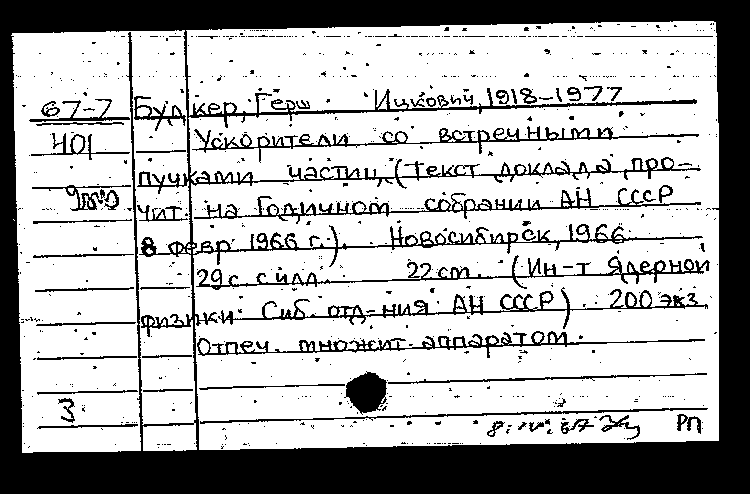 67-7 Будкер, Герш Ицкович, 1918-1977
401 Ускорители со встречными
пучками частиц, (Текст доклада, про-
чит. на Годичном собрании АН СССР
8 февр 1966 г.). Новосибирск, 1966
29 с. с илл. 22 cm. (Ин-т ядерной
физики Сиб. отд-ния АН СССР). 200 экз.
Отпеч. множит. аппаратом.
3
РП